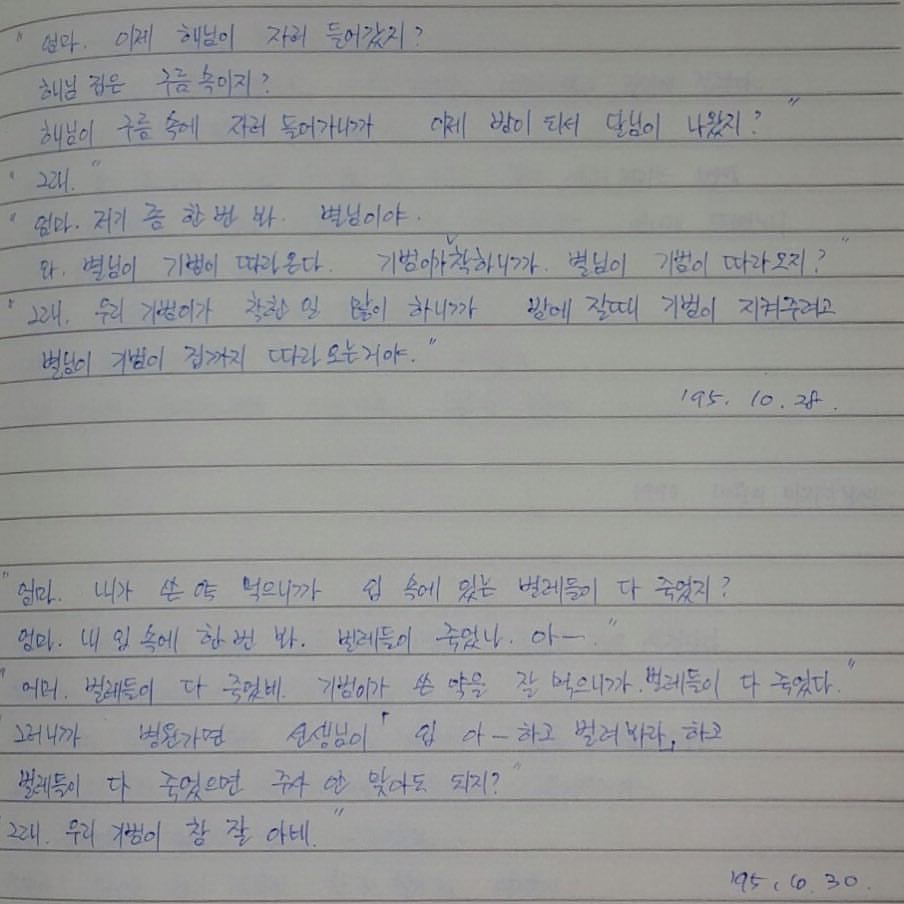 " 엄마. 이제 해님이 자러 들어갔지?
해님 집은 구름 속이지?
해님이 구름 속에 자러 들어가니까 이제 밤이 되서 달님이 나왔지? "
" 그래. "
" 엄마. 저기 좀 한 번 봐. 별님이야.
와. 별님이 기범이 따라온다. 기범이가 착하니까. 별님이 기범이 따라오지? "
" 그래. 우리 기범이가 착한 일 많이 하니까 밤에 잘때 기범이 지켜주려고
별님이 기범이 집까지 따라오는거야. "
'95. 10. 28.
" 엄마. 내가 쓴 약 먹으니까 입 속에 있는 벌레들이 다 죽었지?
엄마. 내 입 속에 한 번 봐. 벌레들이 죽었나. 아— "
" 어머. 벌레들이 다 죽었네. 기범이가 쓴 약을 잘 먹으니까 벌레들이 다 죽었다. "
" 그러니까 병원가면 선생님이 " 입 아—하고 벌려봐라, 하고
벌레들이 다 죽었으면 주사 안 맞아도 되지? "
" 그래. 우리 기범이 참 잘 아네. "
'95. 10. 30.